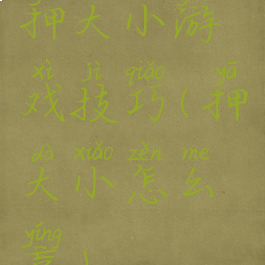 押大小游
xì jì qiǎo yā
戏技巧(押
dà xiǎo zěn me
大小怎么
yíng
赢)